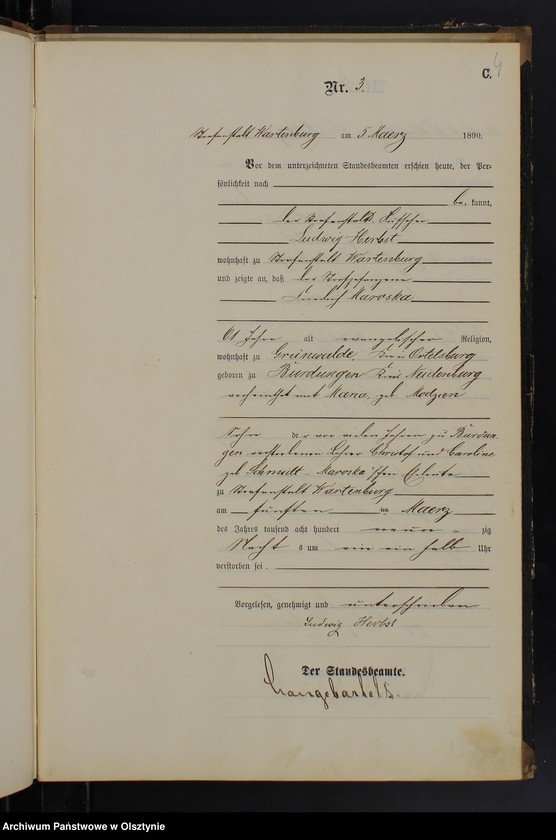 C. 4
Nr. 3.
Strafanstalt Wartenburg am 5 Maerz 1890.
Vor dem unterzeichneten Standesbeamten erschien heute, der Per-
sönlichkeit nach
be. kannt,
der Strafanstalts Aufseher
Ludwig Herbst
wohnhaft zu Strafanstalt Wartenburg
und zeigte an, daß der Strafgefangene
Friedrich Maroska
61 Jahre alt evangelischer Religion,
wohnhaft zu Grünwalde, Kreis Ortelsburg
geboren zu Burdungen Kreis Neidenburg
verheirathet mit Maria, geb Modzien
Sohn der vor vielen Jahren zu Burdun-
gen verstorbenen Christof und Caroline
geb Schmidt - Maroska'schen Eheleute
zu Strafanstalt Wartenburg
am fünften Maerz
des Jahres tausend acht hundert neun - zig
Nacht s um ein ein halb Uhr
verstorben sei.
Vorgelesen, genehmigt und unterschrieben
Ludwig Herbst
Der Standesbeamte.
Langebartels.
Archiwum Państwowe w Olsztynie